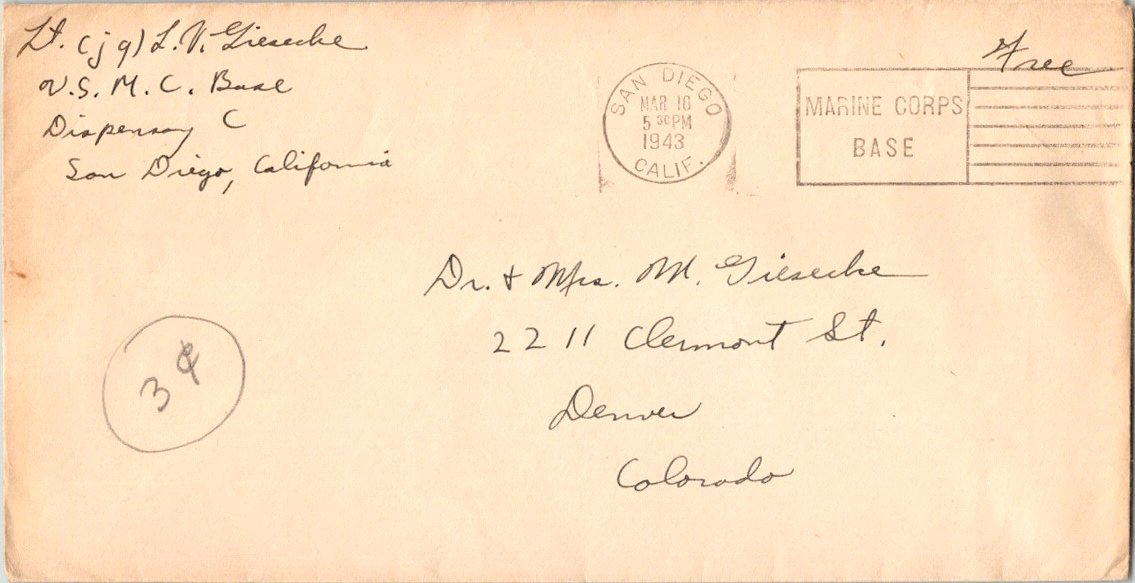 Lt. (jg) L. V. Giesecke
U.S. M. C. Base
Dispensary C
San Diego, California
Free
SAN DIEGO
MAR 10
5 30 PM
1943
CALIF.
MARINE CORPS
BASE
Dr. & Mrs. M. Giesecke
2211 Clermont St.
Denver
Colorado
3¢